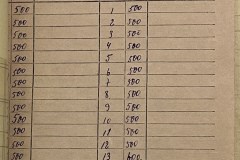 500 1 500
500 2 500
500 3 500
500 4 500
500 5 500
500 6 500
500 7 500
500 8 500
500 9 500
500 10 500
500 11 500
500 12 500
500 13 600